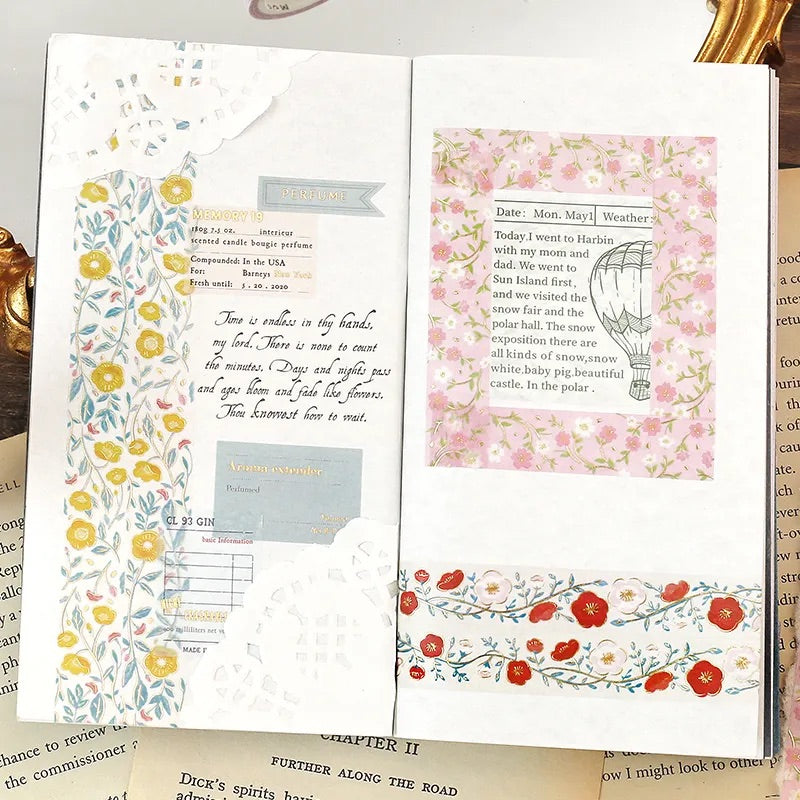 PERFUME
MEMORY 19
180g 7.5 oz. interieur
scented candle bougie perfume
Compounded: In the USA
For: Barneys New York
Fresh until: 5 . 20 . 2020
Time is endless in thy hands,
my lord. There is none to count
the minutes. Days and nights pass
and ages bloom and fade like flowers.
Thou knowest how to wait.
Aroma-extender
Perfumed
CL 93 GIN
basic Information
milliliters net
MADE
Date: Mon. May1 Weather:
Today,I went to Harbin
with my mom and
dad. We went to
Sun Island first,
and we visited the
snow fair and the
polar hall. The snow
exposition there are
all kinds of snow,snow
white,baby pig,beautiful
castle. In the polar .
CHAPTER II
FURTHER ALONG THE ROAD
DICK'S spirits
chance to review
the commissioner
now I might look to other